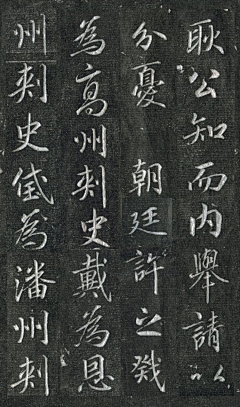 耿公知而内舉請以
分憂 朝廷許之戣
為高州刾史戴為恩
州刾史玳為潘州刾